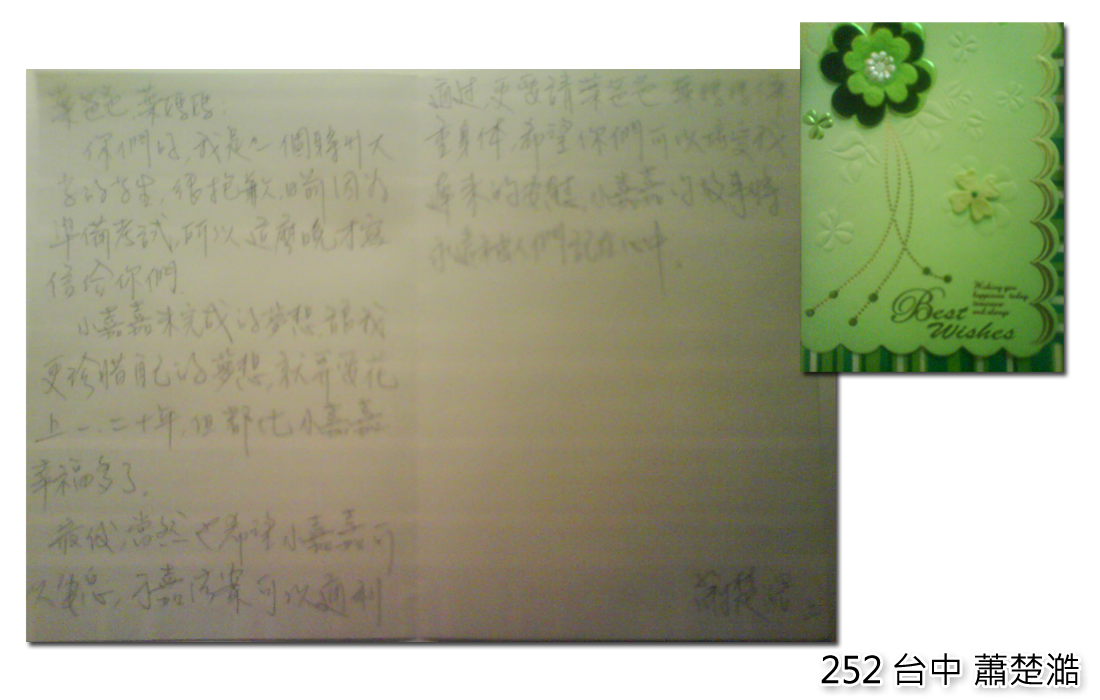 葉爸爸、葉媽媽:
你們好,我是一個勝利大
學的學生,很抱歉,日前因為
準備考試,所以這麼晚才寫
信給你們
小嘉嘉未完成的夢想,讓我
更珍惜自己的夢想,就算要花
上一、二十年,但都比小嘉嘉
幸福多了。
最後,當然也希望小嘉嘉可
以安息,
可以順利
通過,更要請葉爸爸 葉媽媽保
重身体,希望你們可以
小嘉嘉的故事將
永遠被人們記在心中。
蕭楚澔
Best
Wishes
Wishing you
happiness today
tomorrow
and always
252 台中 蕭楚澔